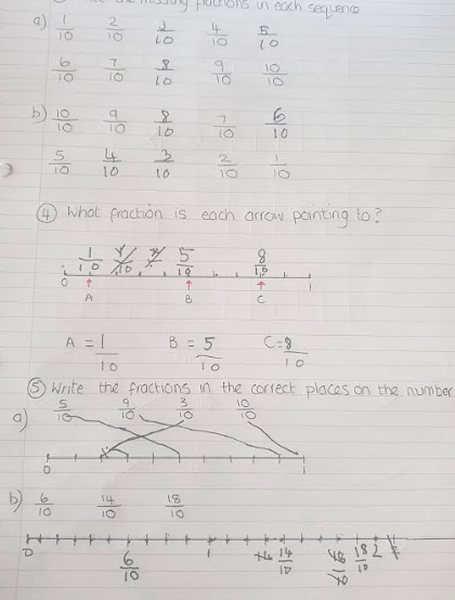 the missing fractions in each sequence
a) 1/10 2/10 3/10 4/10 5/10
6/10 7/10 8/10 9/10 10/10
b) 10/10 9/10 8/10 7/10 6/10
5/10 4/10 3/10 2/10 1/10
④ What fraction is each arrow pointing to?
1/10 5/10 8/10
0 1
A B C
A = 1/10 B = 5/10 C = 8/10
⑤ Write the fractions in the correct places on the number
a) 5/10 9/10 3/10 10/10
0 1
b) 6/10 14/10 18/10
0 6/10 1 14/10 18/10 2